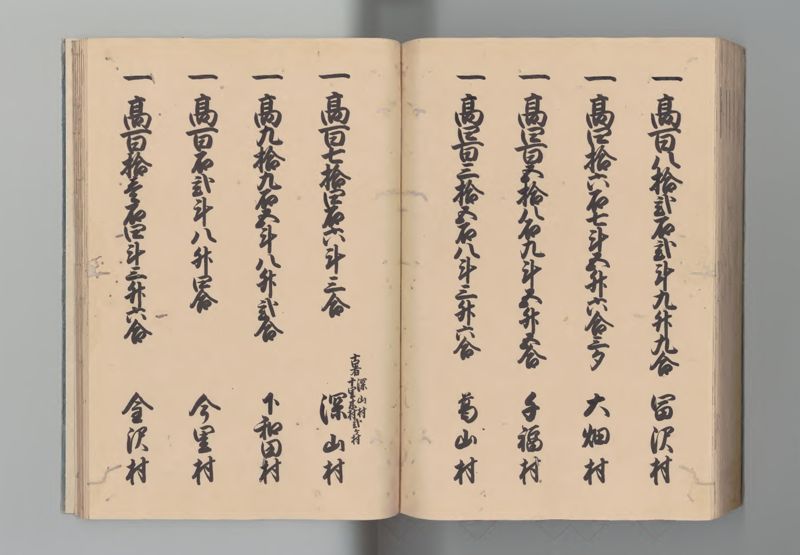 一 高百八拾弐石弐斗九升九合 冨沢村
一 高四拾六石七斗五升六合三夕 大畑村
一 高四百五拾八石九斗五升五合 千福村
一 高四百三拾五石八斗三升六合 葛山村
一 高百七拾四石六斗三合 深山村
古者 深山村 十里木村 弐ケ村
一 高九拾九石五斗八升弐合 下和田村
一 高百石弐斗八升四合 今里村
一 高百拾壱石四斗三升六合 金沢村